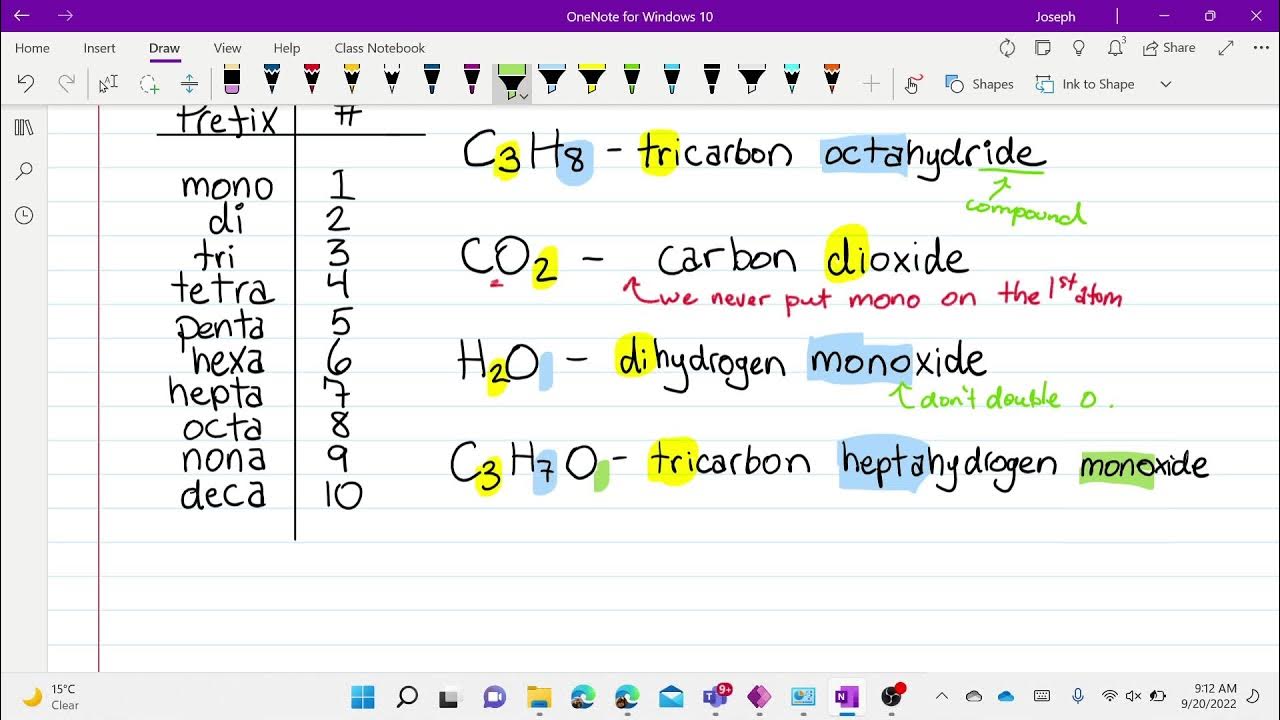 OneNote for Windows 10
Joseph
Home Insert Draw View Help Class Notebook
3
Share
Shapes
Ink to Shape
Prefix #
mono 1
di 2
tri 3
tetra 4
penta 5
hexa 6
hepta 7
octa 8
nona 9
deca 10
C3H8 - tricarbon octahydride
compound
CO2 - carbon dioxide
we never put mono on the 1st atom
H2O - dihydrogen monoxide
don't double o.
C3H7O - tricarbon heptahydrogen monoxide
15°C
Clear
9+
9:12 AM
9/20/2022